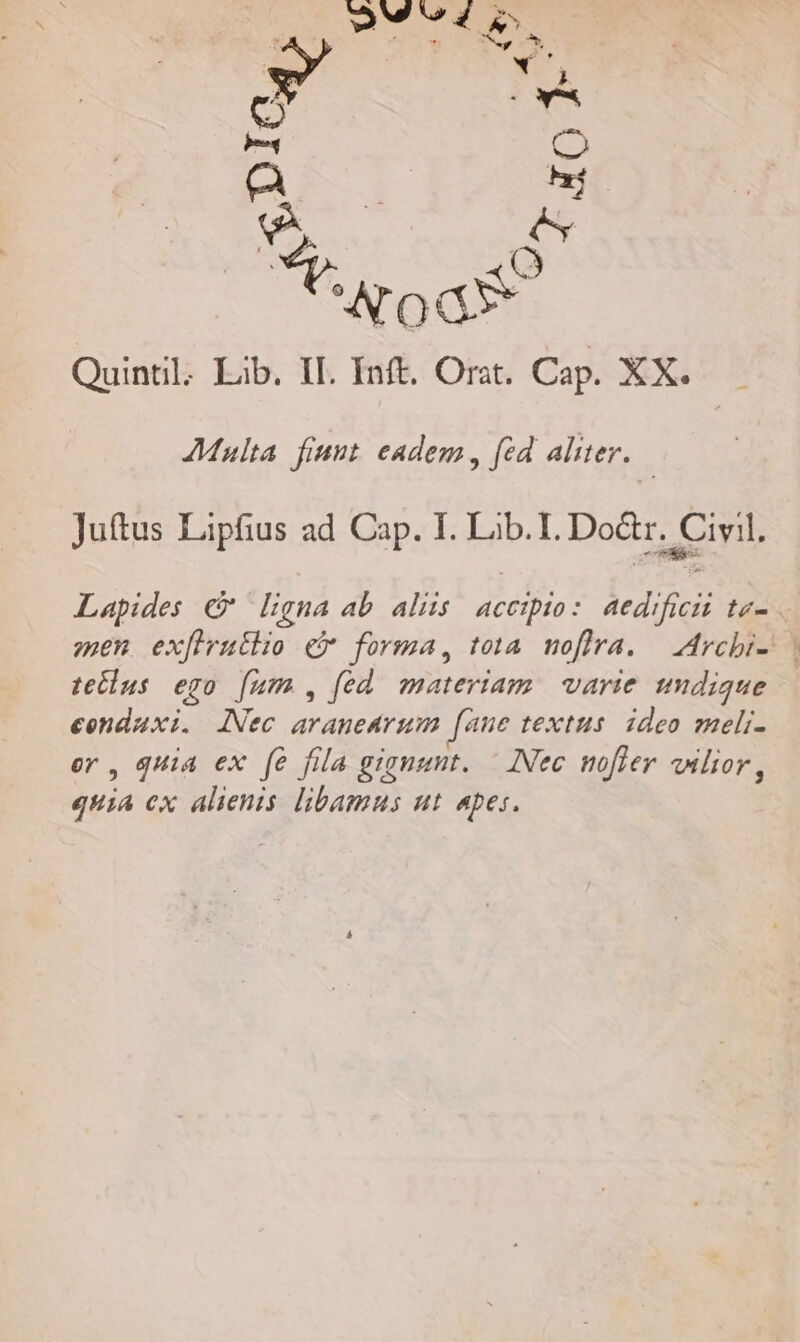 MEDICAL SOCIETY OF LONDON.
Quintil. Lib. II. Inſt. Orat. Cap. XX.
Multa fiunt eadem, ſed aliter.
Juſtus Lipſius ad Cap. I. Lib. I. Doctr. Civil.
Lapides & ligna ab aliis accipio: aedificii ta-
men exſtructio & forma, tota noſtra. Archi-
tectus ego ſum, ſed materiam varie undique
conduxi. Nec aranearum ſane textus ideo meli-
or, quia ex ſe fila gignunt. Nec noſter vilior,
quia ex alienis libamus ut apes.